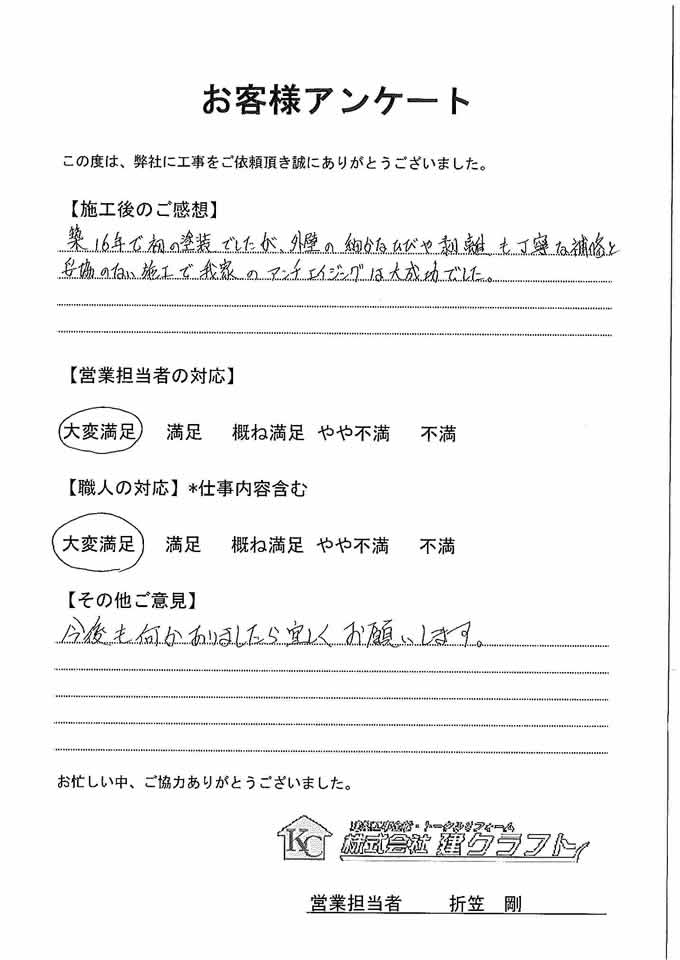 お客様アンケート
この度は、弊社に工事をご依頼頂き誠にありがとうございました。
【施工後のご感想】
築16年で初の塗装でしたが、外壁の細かなひびや剥離も丁寧な補修と
妥協のない施工で我家のアンチエイジングは大成功でした。
【営業担当者の対応】
大変満足 満足 概ね満足 やや不満 不満
【職人の対応】*仕事内容含む
大変満足 満足 概ね満足 やや不満 不満
【その他ご意見】
今後も何かありましたら宜しくお願いします。
お忙しい中、ご協力ありがとうございました。
KC
株式会社 建クラフト
営業担当者 折笠 剛